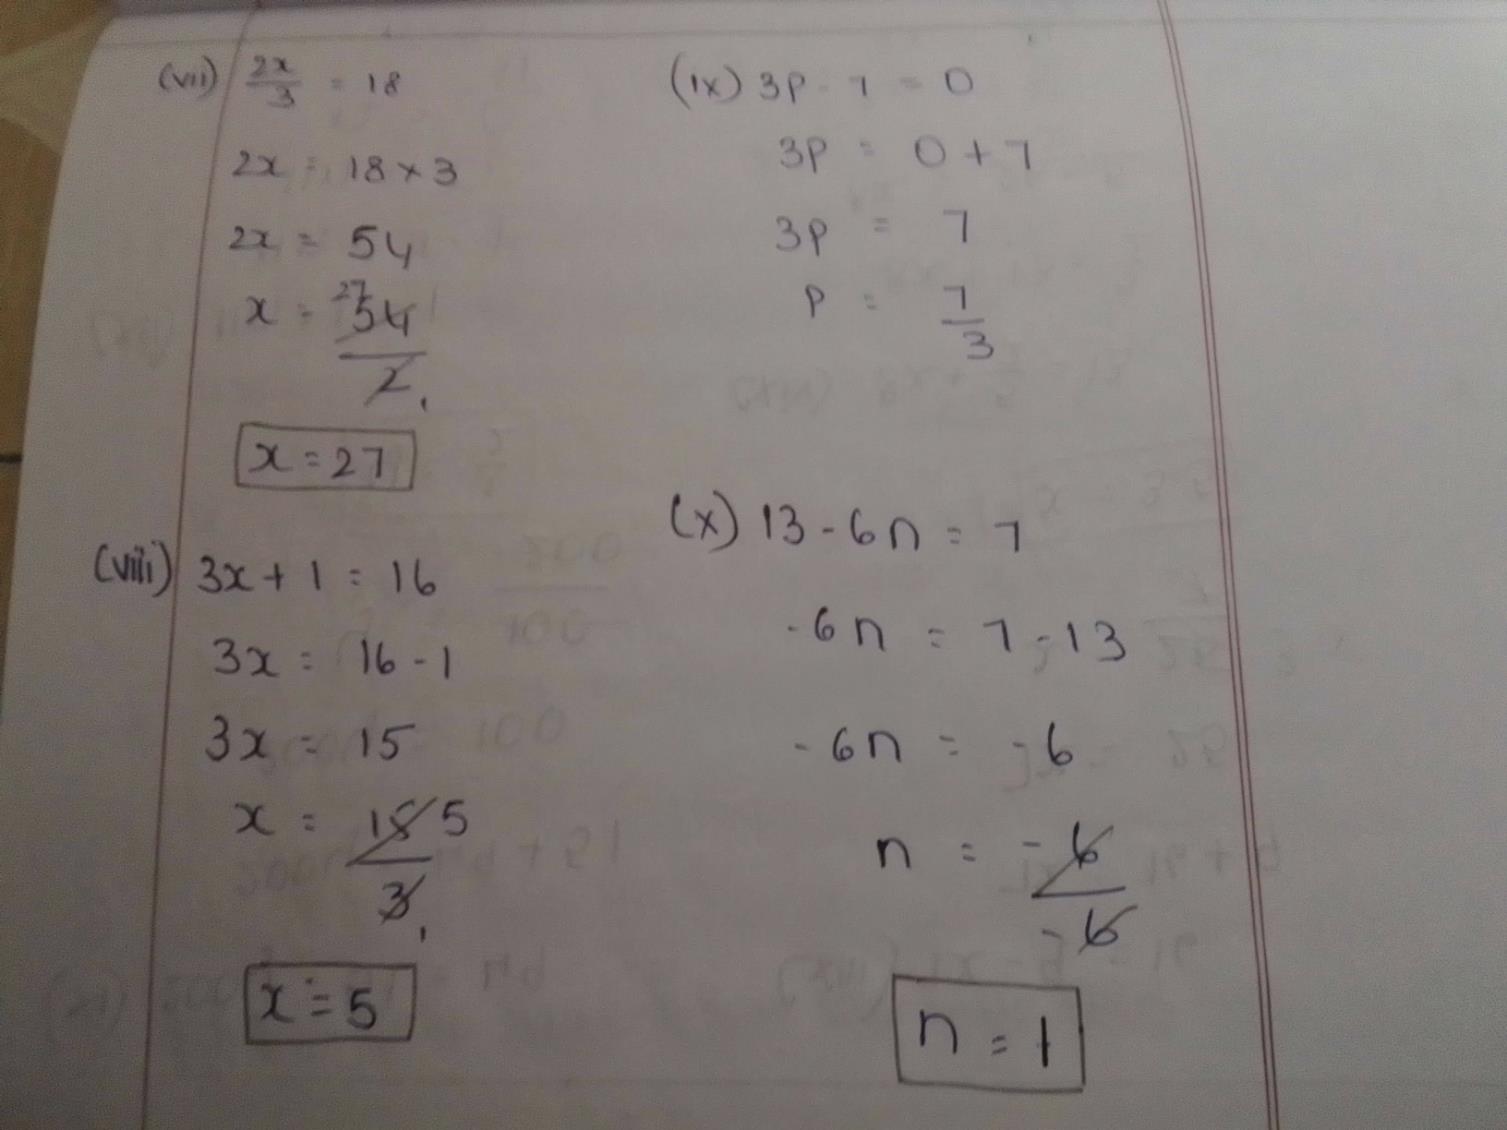 (vii) 2x/3 = 18
2x = 18 × 3
2x = 54
x = 27 54/2 1
x = 27
(viii) 3x + 1 = 16
3x = 16 - 1
3x = 15
x = 15/3 5 1
x = 5
(ix) 3p - 7 = 0
3p = 0 + 7
3p = 7
p = 7/3
(x) 13 - 6n = 7
-6n = 7 - 13
-6n = -6
n = -6/-6
n = 1